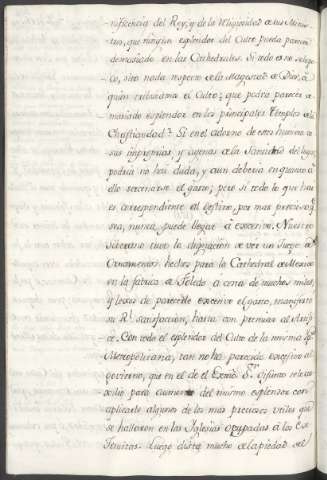 nificencia del Rey, y de la Religiosidad de sus Minis-
tros, que ningun esplendor del Culto pueda parecer
demasiado en las Cathedrales. Si todo es no solo
sito nada respecto a la Magestad de Dios, a
quien tributamos el Culto; que podra parecer de-
masiado esplendor en los principales Templos de la
Christiandad? Si en el adorno de estos huviera co-
sas impropias, y agenas de la Santidad del lugar,
podria no haver duda, y aun deberia en quanto a
ello escusarse el gasto; pero si todo lo que hay
es correspondiente al destino, por mas precioso que
sea, nunca puede llegar a excesivo. Nuestro
Soberano tuvo la dignacion de ver un Juego de
Ornamentos, hechos para la Cathedral de Mexico
en la fabrica de Toledo a costa de muchos miles,
y lexos de parecerle excesivo el gasto, manifesto
su Rl. satisfaccion, hasta con premiar al Artifi-
ce. Con todo el esplendor del Culto de la misma Yga.
Metropolitana, tan no ha parecido excesivo al
govierno, que en el de el Exmo. Sr.
xilio para aumento del mismo esplendor con
aplicarle algunos de los mas preciosos utiles que
se hallaron en las Iglesias ocupadas a los Ex-
Jesuitas. Luego dista mucho de la piedad del